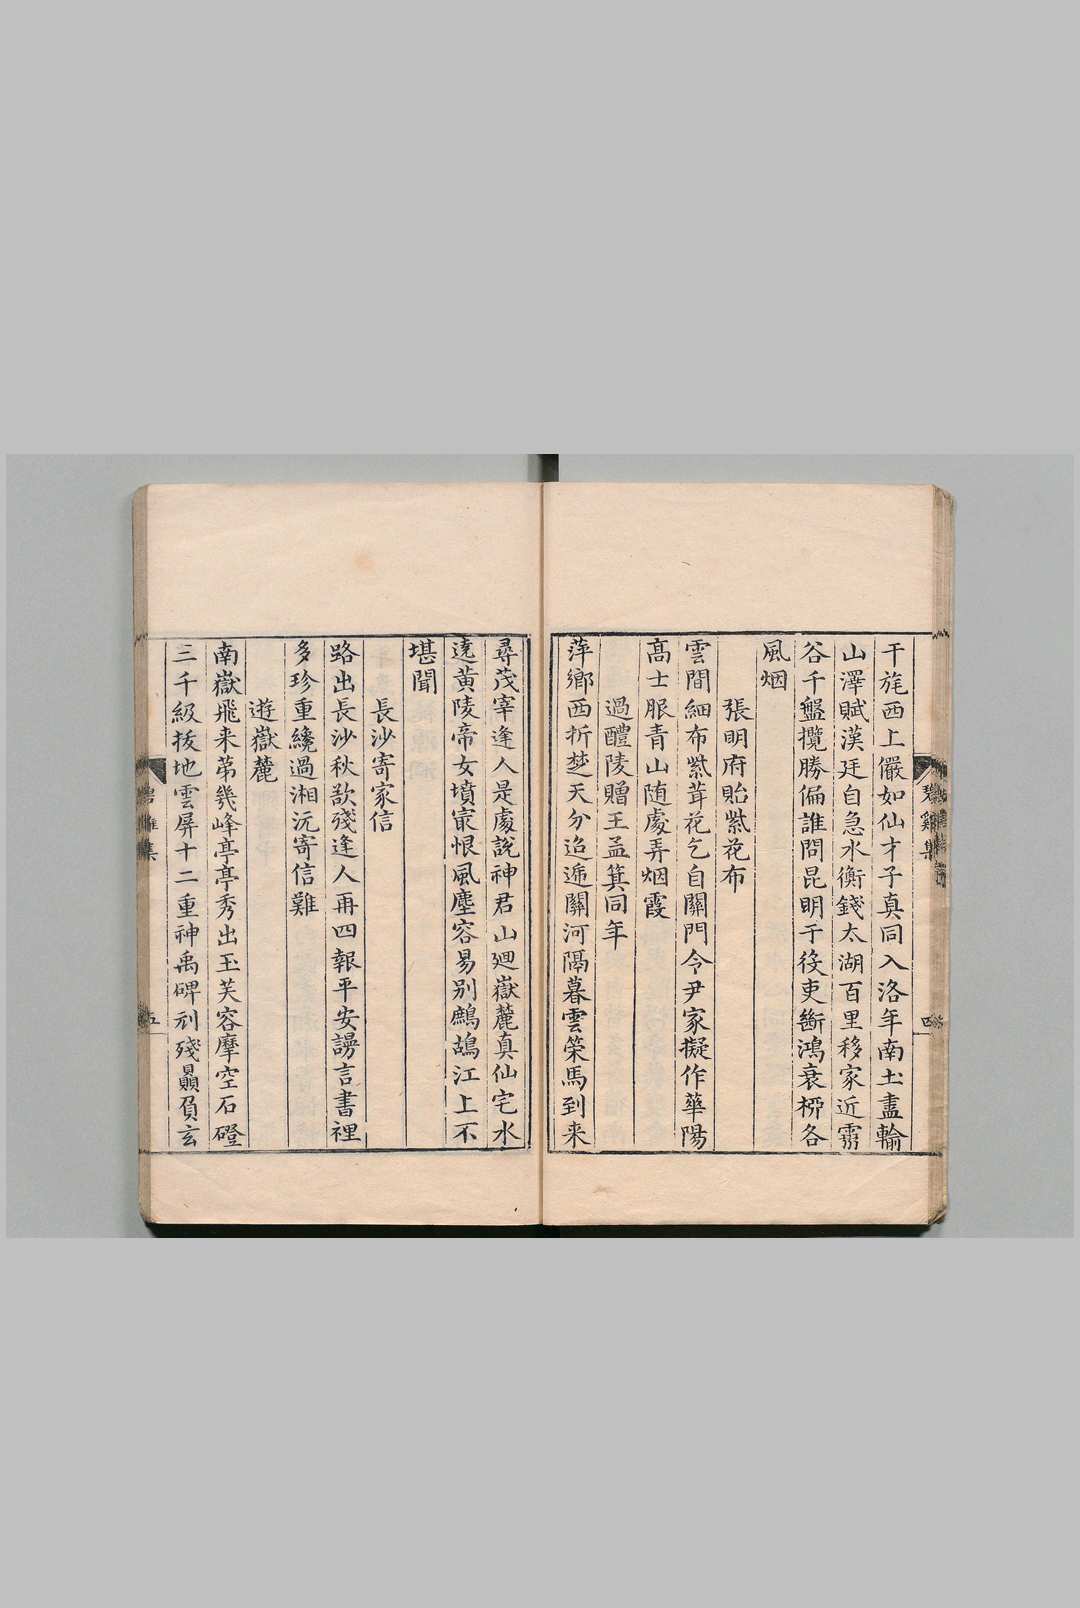 干旄西上儼如仙才子真同入洛年南土盡輸
山澤賦漢廷自急水衡錢太湖百里移家近霛
谷千盤攬勝偏誰問昆明于役吏斷鴻衰栁各
風烟
張明府貽紫花布
雲間細布紫茸花乞自關門令尹家擬作華陽
高士服青山随處弄烟霞
過醴陵贈王孟箕同年
萍鄉西折楚天分迢遞關河隔暮雲策馬到来
碧雞集
四
尋茂宰逢人是處說神君山廻嶽麓真仙宅水
遶黄陵帝女墳最恨風塵容易别鷓鴣江上不
堪聞
長沙寄家信
路出長沙秋欲殘逢人再四報平安謾言書裡
多珍重纔過湘沅寄信難
遊嶽麓
南嶽飛来苐幾峰亭亭秀出玉芙容摩空石磴
三千級拔地雲屏十二重神禹碑刓殘贔屓玄
碧雞集
五